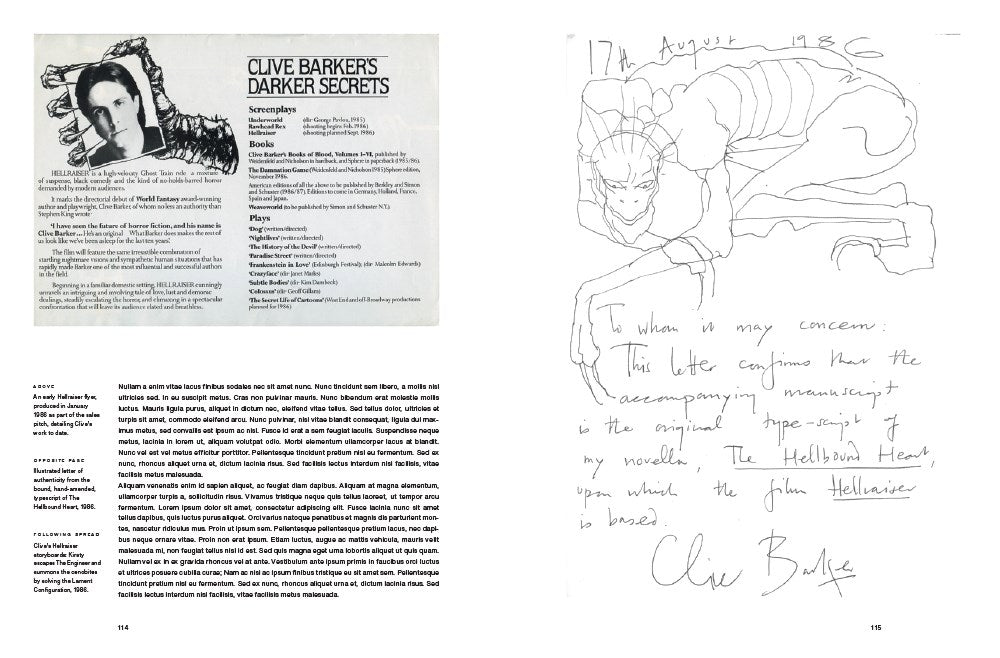 CLIVE BARKER'S
DARKER SECRETS
Screenplays
Underworld (dir George Pavlou, 1985)
Rawhead Rex (shooting begins Feb. 1986)
Hellraiser (shooting planned Sept. 1986)
Books
Clive Barker's Books of Blood, Volumes I–VI, published by
Weidenfeld and Nicholson in hardback, and Sphere in paperback (1985/86).
The Damnation Game (Weidenfeld and Nicholson 1985) Sphere edition,
November 1986.
American editions of all the above to be published by Berkley and Simon
and Schuster (1986/87). Editions to come in Germany, Holland, France,
Spain and Japan.
Weaveworld (to be published by Simon and Schuster N.Y.).
Plays
'Dog' (written/directed)
'Nightlives' (written/directed)
'The History of the Devil' (written/directed)
'Paradise Street' (written/directed)
'Frankenstein in Love' (Edinburgh Festival); (dir Malcolm Edwards)
'Crazyface' (dir Janet Marks)
'Subtle Bodies' (dir Kim Dambeck)
'Colossus' (dir Geoff Gillam)
'The Secret Life of Cartoons' (West End and off-Broadway productions
planned for 1986)
HELLRAISER is a high-velocity Ghost Train ride a mixture
of suspense, black comedy and the kind of no-holds-barred horror
demanded by modern audiences.
It marks the directorial debut of World Fantasy award-winning
author and playwright, Clive Barker, of whom no less an authority than
Stephen King wrote
'I have seen the future of horror fiction, and his name is
Clive Barker... He's an original What Barker does makes the rest of
us look like we've been asleep for the last ten years.'
The film will feature the same irresistible combination of
startling nightmare visions and sympathetic human situations that has
rapidly made Barker one of the most influential and successful authors
in the field.
Beginning in a familiar domestic setting, HELLRAISER cunningly
unravels an intriguing and involving tale of love, lust and demonic
dealings, steadily escalating the horror, and climaxing in a spectacular
confrontation that will leave its audience elated and breathless.
ABOVE
An early Hellraiser flyer,
produced in January
1986 as part of the sales
pitch, detailing Clive's
work to date.
OPPOSITE PAGE
Illustrated letter of
authenticity from the
bound, hand-amended,
typescript of The
Hellbound Heart, 1986.
FOLLOWING SPREAD
Clive's Hellraiser
storyboards: Kirsty
escapes The Engineer and
summons the cenobites
by solving the Lament
Configuration, 1986.
Nullam a enim vitae lacus finibus sodales nec sit amet nunc. Nunc tincidunt sem libero, a mollis nisl
ultricies sed. In eu suscipit metus. Cras non pulvinar mauris. Nunc bibendum erat molestie mollis
luctus. Mauris ligula purus, aliquet in dictum nec, eleifend vitae tellus. Sed tellus dolor, ultricies et
turpis sit amet, commodo eleifend arcu. Nunc pulvinar, nisl vitae blandit consequat, ligula dui max-
imus metus, sed convallis est ipsum ac nisl. Fusce id erat a sem feugiat iaculis. Suspendisse neque
metus, lacinia in lorem ut, aliquam volutpat odio. Morbi elementum ullamcorper lacus at blandit.
Nunc vel est vel metus efficitur porttitor. Pellentesque tincidunt pretium nisl eu fermentum. Sed ex
nunc, rhoncus aliquet urna et, dictum lacinia risus. Sed facilisis lectus interdum nisl facilisis, vitae
facilisis metus malesuada.
Aliquam venenatis enim id sapien aliquet, ac feugiat diam dapibus. Aliquam at magna elementum,
ullamcorper turpis a, sollicitudin risus. Vivamus tristique neque quis tellus laoreet, ut tempor arcu
fermentum. Lorem ipsum dolor sit amet, consectetur adipiscing elit. Fusce lacinia nunc sit amet
tellus dapibus, quis luctus purus aliquet. Orci varius natoque penatibus et magnis dis parturient mon-
tes, nascetur ridiculus mus. Proin ut ipsum sem. Pellentesque pellentesque pretium lacus, nec dapi-
bus neque ornare vitae. Proin non erat ipsum. Etiam luctus, augue ac mattis vehicula, mauris velit
malesuada mi, non feugiat tellus nisl id est. Sed quis magna eget urna lobortis aliquet ut quis quam.
Nullam vel ex in ex gravida rhoncus vel at ante. Vestibulum ante ipsum primis in faucibus orci luctus
et ultrices posuere cubilia curae; Nam ac nisl ac ipsum finibus tristique eu sit amet sem. Pellentesque
tincidunt pretium nisl eu fermentum. Sed ex nunc, rhoncus aliquet urna et, dictum lacinia risus. Sed
facilisis lectus interdum nisl facilisis, vitae facilisis metus malesuada.
114
17th August 1986
To whom it may concern:
This letter confirms that the
accompanying manuscript
is the original type-script of
my novella, The Hellbound Heart,
upon which the film Hellraiser
is based.
Clive Barker
115